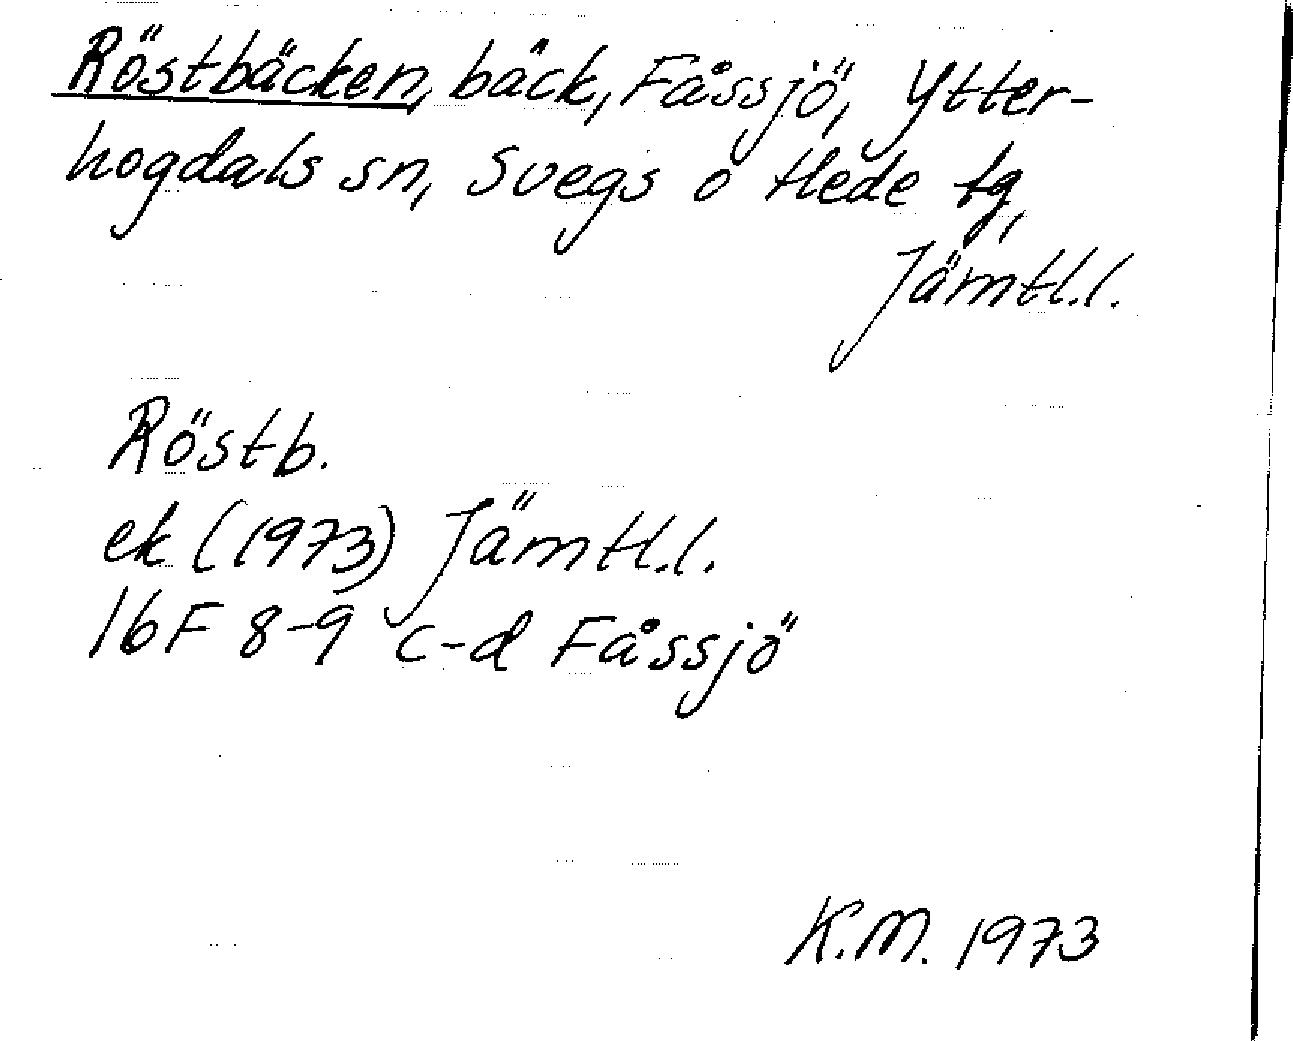 Röstbäcken, bäck, Fåssjö, Ytter-
hogdals sn, Svegs o Hede tg,
Jämtl.l.
Röstb.
ek (1973) Jämtl.l.
16F 8-9 c-d Fåssjö
K.M. 1973